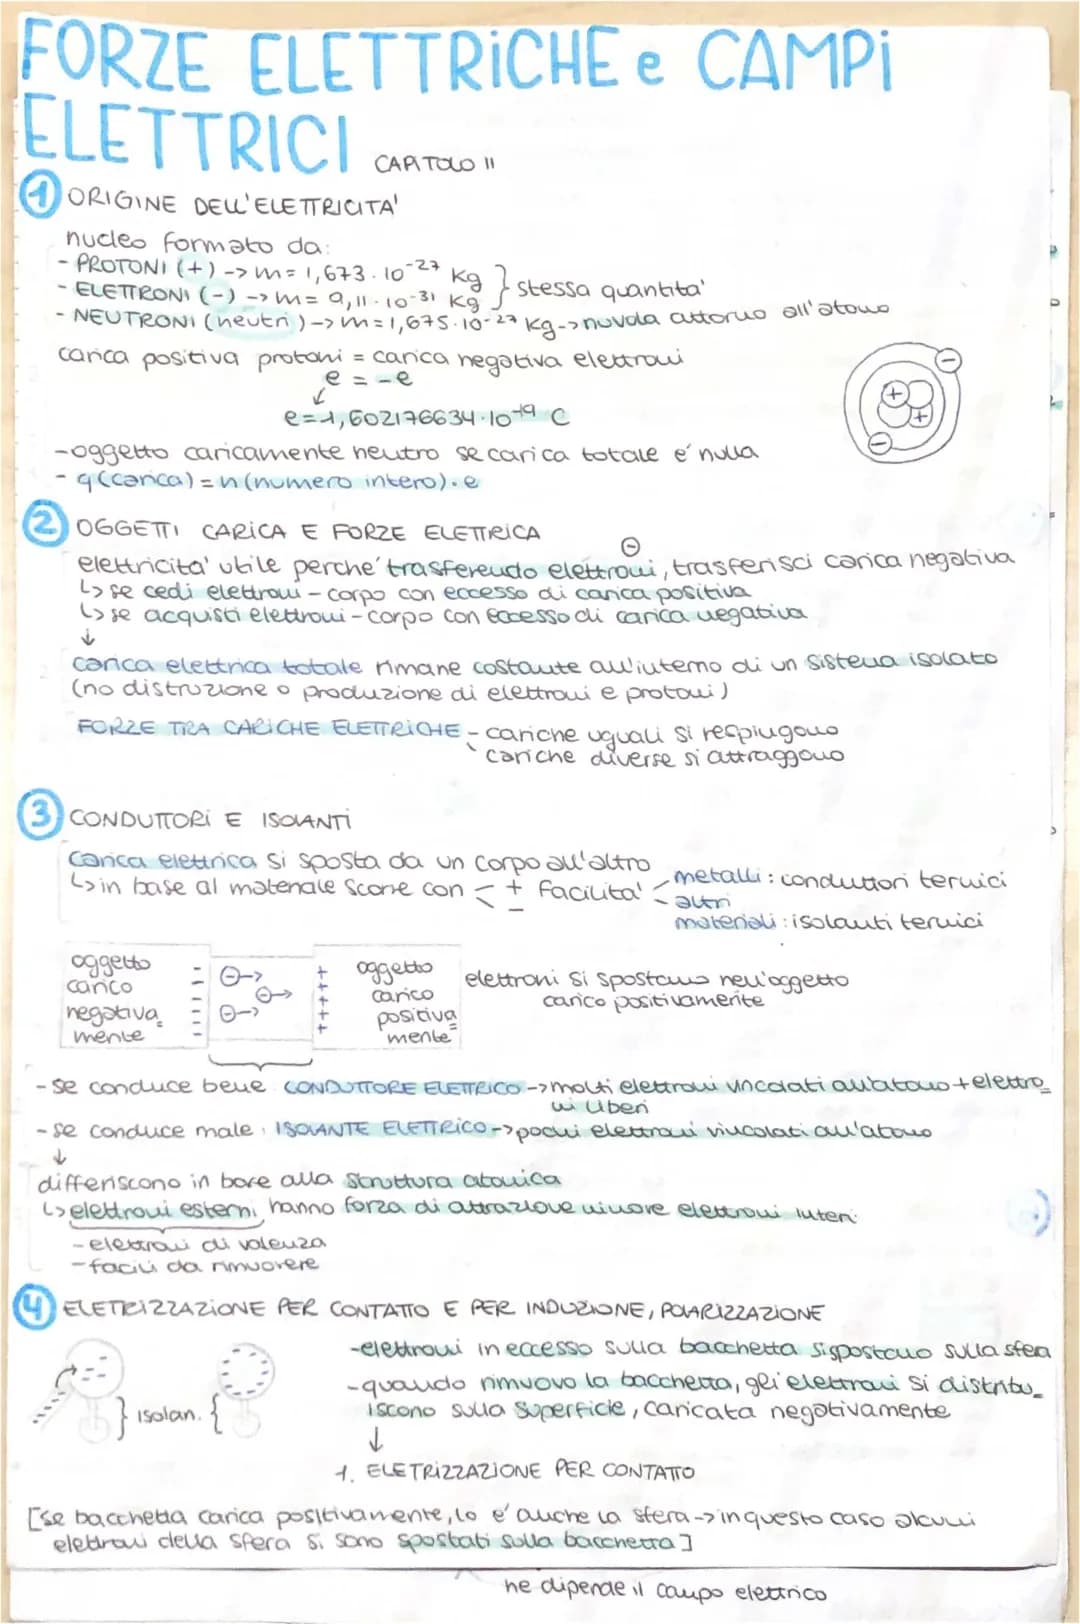 FORZE ELETTRICHE e CAMPI
ELETTRICI CAPITOLO 11
1 ORIGINE DELL'ELETTRICITA'
nucleo formato da:
- PROTONI (+) -> m = 1,673 · 10⁻²⁷ Kg } stessa quantita'
- ELETTRONI (-) -> m = 9,11 · 10⁻³¹ Kg
- NEUTRONI (neutri) -> m = 1,675 · 10⁻²⁷ Kg -> nuvola attorno all'atomo
carica positiva protoni = carica negativa elettroni
e = -e
e = 1,602176634 · 10⁻¹⁹ C
- oggetto caricamente neutro se carica totale e' nulla
- q (carica) = n (numero intero) · e
2 OGGETTI CARICA E FORZE ELETTRICA
elettricita' utile perche' trasferendo elettroni, trasferisci carica negativa
↳ se cedi elettroni - corpo con eccesso di carica positiva
↳ se acquisti elettroni - corpo con eccesso di carica negativa
↓
carica elettrica totale rimane costante all'interno di un sistema isolato
(no distruzione o produzione di elettroni e protoni)
FORZE TRA CARICHE ELETTRICHE - cariche uguali si respingono
cariche diverse si attraggono
3 CONDUTTORI E ISOLANTI
carica elettrica si sposta da un corpo all'altro
↳ in base al materiale scorre con < + - facilita' - metalli: conduttori termici
- altri
materiali: isolanti termici
oggetto carico negativa_mente
oggetto carico positiva_mente
elettroni si spostano nell'oggetto
carico positivamente
- se conduce bene CONDUTTORE ELETTRICO -> molti elettroni vincolati all'atomo + elettro_
ni liberi
- se conduce male: ISOLANTE ELETTRICO -> pochi elettroni vincolati all'atomo
↓
differiscono in base alla struttura atomica
↳ elettroni esterni hanno forza di attrazione minore elettroni interi
- elettroni di valenza
- facili da rimuovere
4 ELETRIZZAZIONE PER CONTATTO E PER INDUZIONE, POLARIZZAZIONE
- elettroni in eccesso sulla bacchetta si spostano sulla sfera
- quando rimuovo la bacchetta, gli elettroni si distribu_
iscono sulla superficie, caricata negativamente
} isolan. {
↓
1. ELETRIZZAZIONE PER CONTATTO
[se bacchetta carica positivamente, lo e' anche la sfera -> in questo caso alcuni
elettroni della sfera si sono spostati sulla bacchetta]
ne dipende il campo elettrico